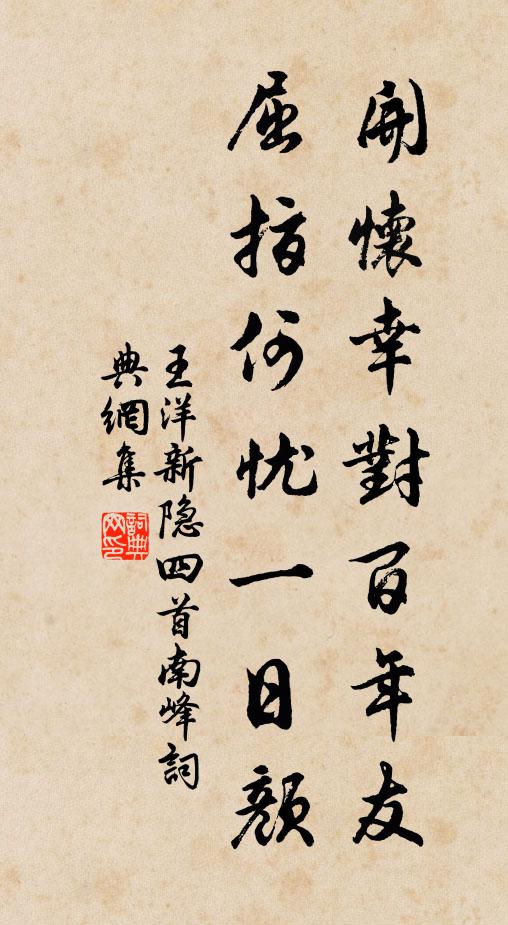 開懷幸對百年友
屈指何忧一日顔
王洋新隐四首南峰詞
典網集
詞典
网印